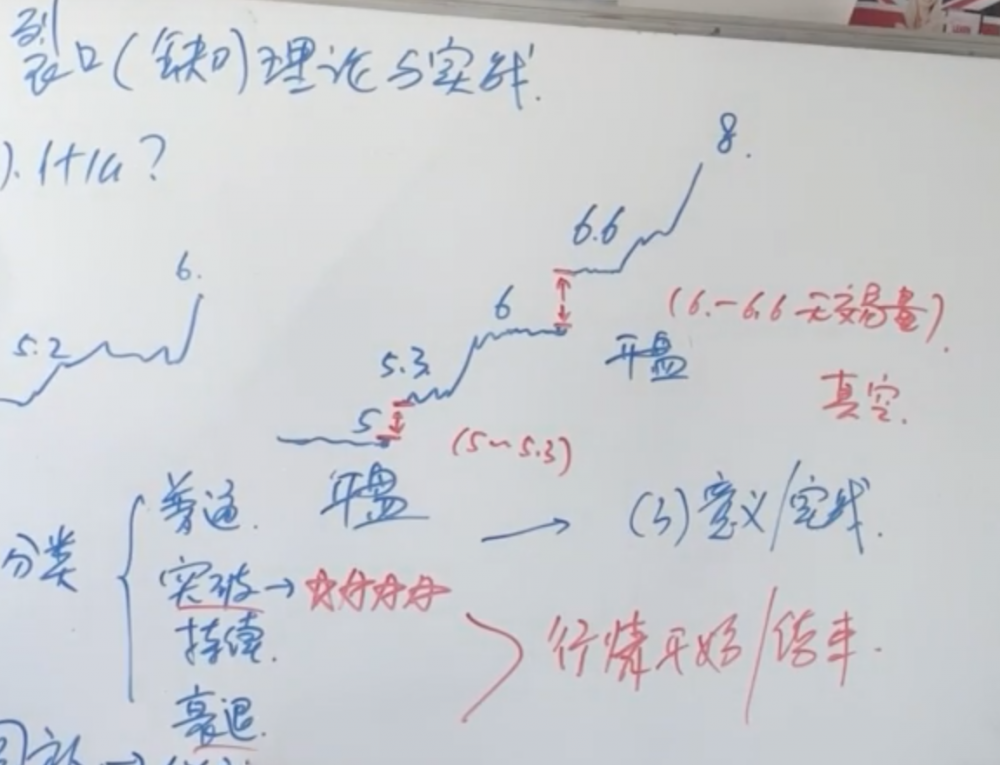 裂口(缺口)理论与实战.
). 1+1a?
8.
6.6
6.
6
(6.-6.6 无交易量).
5.2
5.3
开盘
真空.
5
(5~5.3)
普通.
开盘
→ (3)意义/实战.
分类
突破→☆☆☆☆
持续.
行情开始/结束.
衰退.